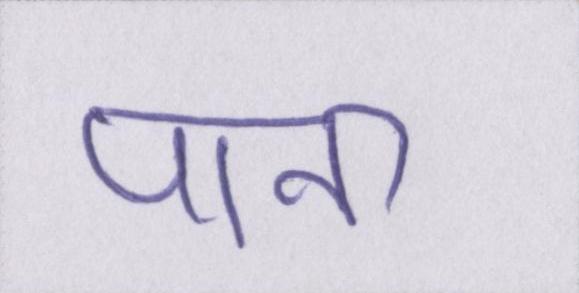 पानी